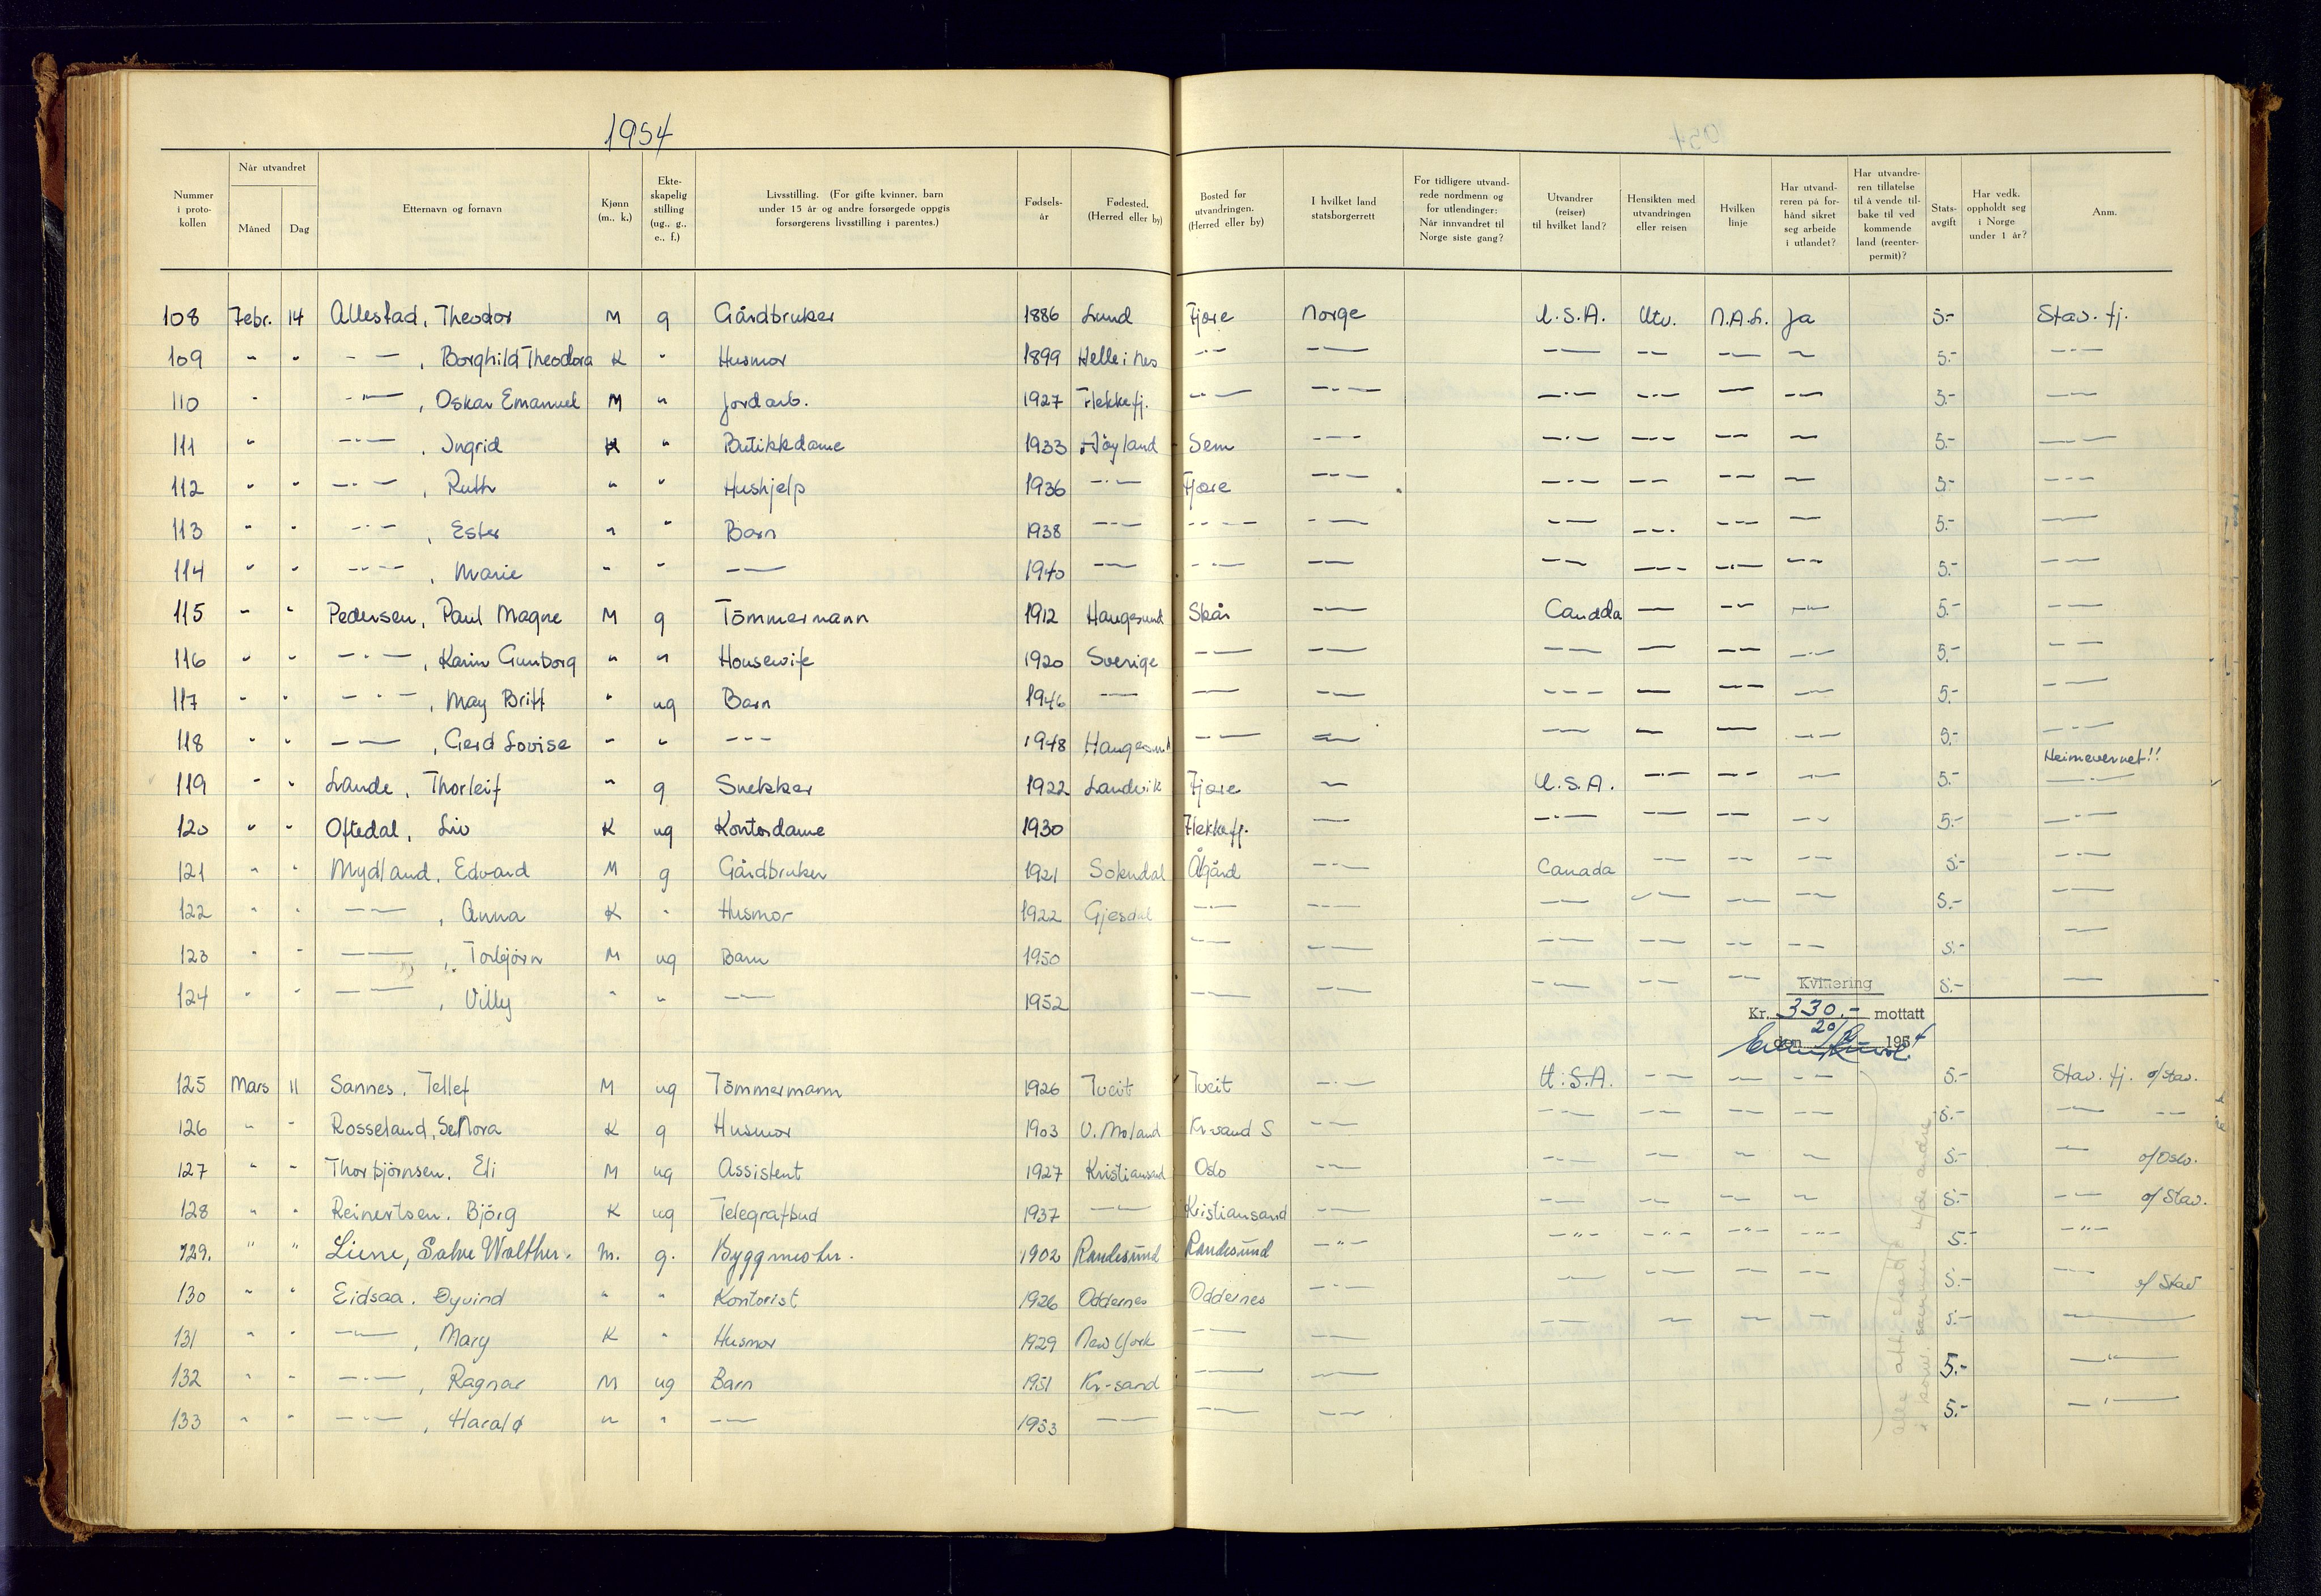 1954
Nummer i proto-kollen | Når utvandret | Måned | Dag | Etternavn og fornavn | Kjønn (m., k.) | Ekte-skapelig stilling (ug., g., e., f.) | Livsstilling. (For gifte kvinner, barn under 15 år og andre forsørgede oppgis forsørgerens livsstilling i parentes.) | Fødsels-år | Fødested. (Herred eller by) | Bosted før utvandringen. (Herred eller by) | I hvilket land statsborgerrett | For tidligere utvand-rede nordmenn og for utlendinger: Når innvandret til Norge siste gang? | Utvandrer (reiser) til hvilket land? | Hensikten med utvandringen eller reisen | Hvilken linje | Har utvand-reren på for-hånd sikret seg arbeide i utlandet? | Har utvandre-ren tillatelse til å vende til-bake til ved kommende land (reenter-permit)? | Stats-avgift | Har vedk. oppholdt seg i Norge under 1 år? | Anm.
108 Febr. 14 Allestad, Theodor M g Gårdbruker 1886 Lund Fjære Norge U.S.A. Utv. N.A.L. Ja 5.- Stav. fj.
109 " " —"— , Borghild Theodora K " Husmor 1899 Helle i Nes —"— —"— —"— —"— —"— —"— 5.- —"—
110 " —"— , Oskar Emanuel M " Jordarb. 1927 Flekkefj. —"— —"— —"— —"— —"— —"— 5.- —"—
111 " —"— , Ingrid K " Butikkdame 1933 Høyland Sem —"— —"— —"— —"— —"— 5.- —"—
112 " " —"— , Ruth " " Hushjelp 1936 —"— Fjære —"— —"— —"— —"— —"— 5.- —"—
113 " " —"— , Ester " " Barn 1938 —"— —"— —"— —"— —"— —"— —"— 5.- —"—
114 " " —"— , Marie " " —"— 1940 —"— —"— —"— —"— —"— —"— —"— 5.- —"—
115 " " Pedersen, Paul Magne M g Tömmermann 1912 Haugesund Skår —"— Canada —"— —"— —"— 5.- —"—
116 " " —"— , Karin Gunborg " " Housewife 1920 Sverige —"— —"— —"— —"— —"— —"— 5.- —"—
117 " " —"— , May Britt " ug Barn 1946 —"— —"— —"— —"— —"— —"— —"— 5.- —"—
118 " " —"— , Gerd Lovise " " —"— 1948 Haugesund —"— —"— —"— —"— —"— —"— 5.- —"—
Heimevernet!!
119 " " Lande, Thorleif " g Snekker 1922 Landvik Fjære —"— U.S.A. —"— —"— —"— 5.- —"—
120 " " Oftedal, Liv K ug Kontordame 1930 Flekkefj. —"— —"— —"— —"— —"— 5.- —"—
121 " " Mydland, Edvard M g Gårdbruker 1921 Sokndal Ågård —"— Canada —"— —"— —"— 5.- —"—
122 " " —"— , Anna K " Husmor 1922 Gjesdal —"— —"— —"— —"— —"— —"— 5.- —"—
123 " " —"— , Torbjörn M ug Barn 1950 —"— —"— —"— —"— —"— —"— 5.- —"—
124 " " —"— , Villy " " —"— 1952 —"— —"— —"— —"— —"— 5.- —"—
Kvittering
Kr. 330.- mottatt
den 20/2 1954
125 Mars 11 Sannes, Tellef M ug Tömmermann 1926 Tveit Tveit —"— U.S.A. —"— —"— —"— 5.- Stav. fj. o/Stav.
126 " " Rosseland, Sellora K g Husmor 1903 V. Moland Kr.sand S —"— —"— —"— —"— —"— 5.- —"— —"—
127 " " Thorbjörnsen, Eli M ug Assistent 1927 Kristiansand Oslo —"— —"— —"— —"— —"— 5.- —"— o/Oslo.
128 " " Reinertsen, Björg K ug Telegrafbud 1937 —"— Kristiansand —"— —"— —"— —"— —"— 5.- —"— o/Stav.
129. " " Liene, Salve Walther. M. g. Byggmester. 1902 Randesund Randesund —"— —"— —"— —"— —"— 5.- —"—
130 " " Eidsaa, Øyvind " " Kontorist 1926 Oddernes Oddernes —"— —"— —"— —"— —"— 5.- —"— o/Stav
131 " " —"— , Mary K " Husmor 1929 New York —"— —"— —"— —"— —"— 5.- —"—
132 " " —"— , Ragnar M ug Barn 1951 Kr.-sand —"— —"— 5.- —"—
133 " " —"— , Harald " " —"— 1953 —"— —"— —"— 5.- —"—